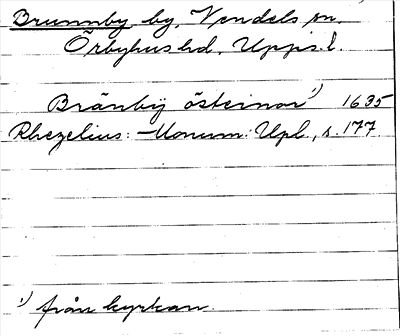 Brunnby by, Vendels sn.
Örbyhus hd, Upps. l.
Bränbij östernor¹⁾ 1635
Rhezelius: Monum. Upl., s. 177.
¹⁾ från kyrkan.